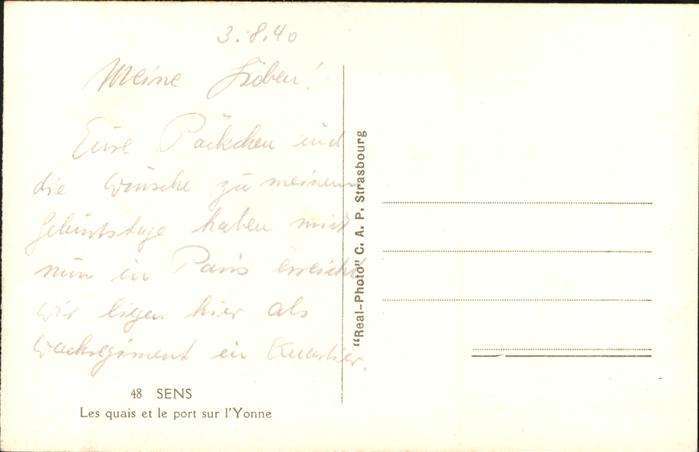 3.8.40
Meine Lieben!
Eure Päckchen und
die Wünsche zu meinem
Geburtstage haben mich
nun in Paris erreicht
wir liegen hier als
Wachregiment in Quartier.
"Real-Photo" C. A. P. Strasbourg
48 SENS
Les quais et le port sur l'Yonne